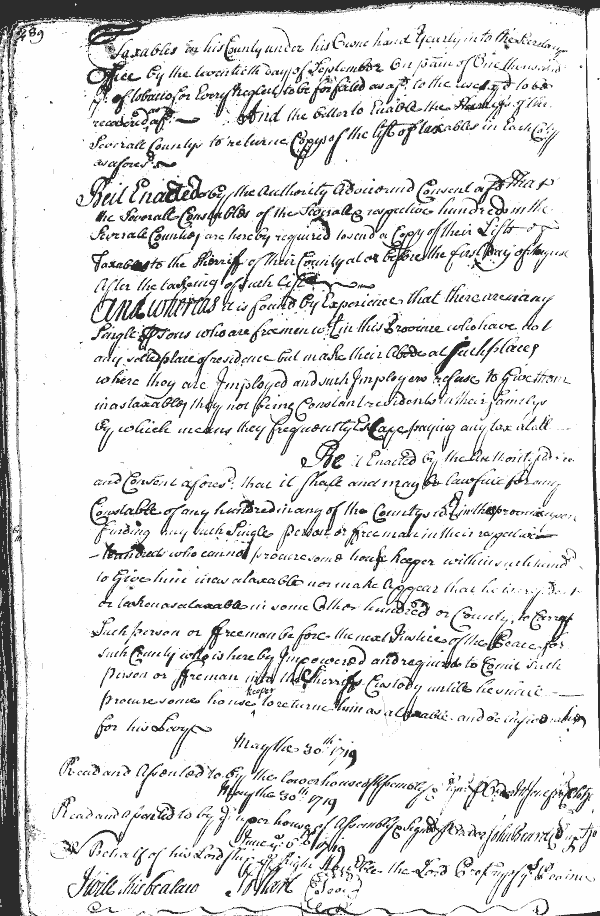 489
Taxables in his County under his Owne hand Yearly into the Secretarys
Office by the twentieth day of September On paine of One thousand
of tobacco for Every Neglect to be forfeited as afd. to the uses afd to be
recovered afd. And the better to Enable the Sherriffs of the
Severall Countys to returne Copys of the list of taxables in Each Coty
as afores:d
Be it Enacted by the Authority Advice and Consent afd That
the Severall Constables of the Severall respective hundreds in the
Severall Counties are hereby required to send a Copy of their Lists of
Taxables to the Sherriff of their County at or before the first Day of August
After the taking of such List
And whereas it is found by Experience that there are many
Single persons who are freemen in this Province who have not
any setled place of residence but make their Abode at Such places
where they are Imployed and such Imployers refuse to Give them
in as taxables they not being Constant residents in their familys
by which means they frequently Escape paying any tax at all
Be it Enacted by the Authority Advice
and Consent afores:d that it Shall and may be lawfull for any
Constable of any hundred in any of the Countys within this province upon
finding any such Single person or freeman in their respective
hundreds who cannot procure some house keeper within such hund
to Give him in as a taxable nor make Appear that he is
or taken as a taxable in some Other hundred or County, to Carry
Such person or freeman before the next Justice of the Peace for
such County who is hereby Impowered and required to Comit such
person or freman into the Sherriffs Custody untill he shall
procure some house keeper to returne him as a taxable and
for his Levy
May the 30th 1719
Read and Assented to by the lower house of Assembly
May the 30th 1719
Read and Assented to by ye upper house of Assembly & Signed p Order
June ye 6th 1719
On Behalf of his Lordship the Right Honble the Lord Propry of ye Province
Jno Hart